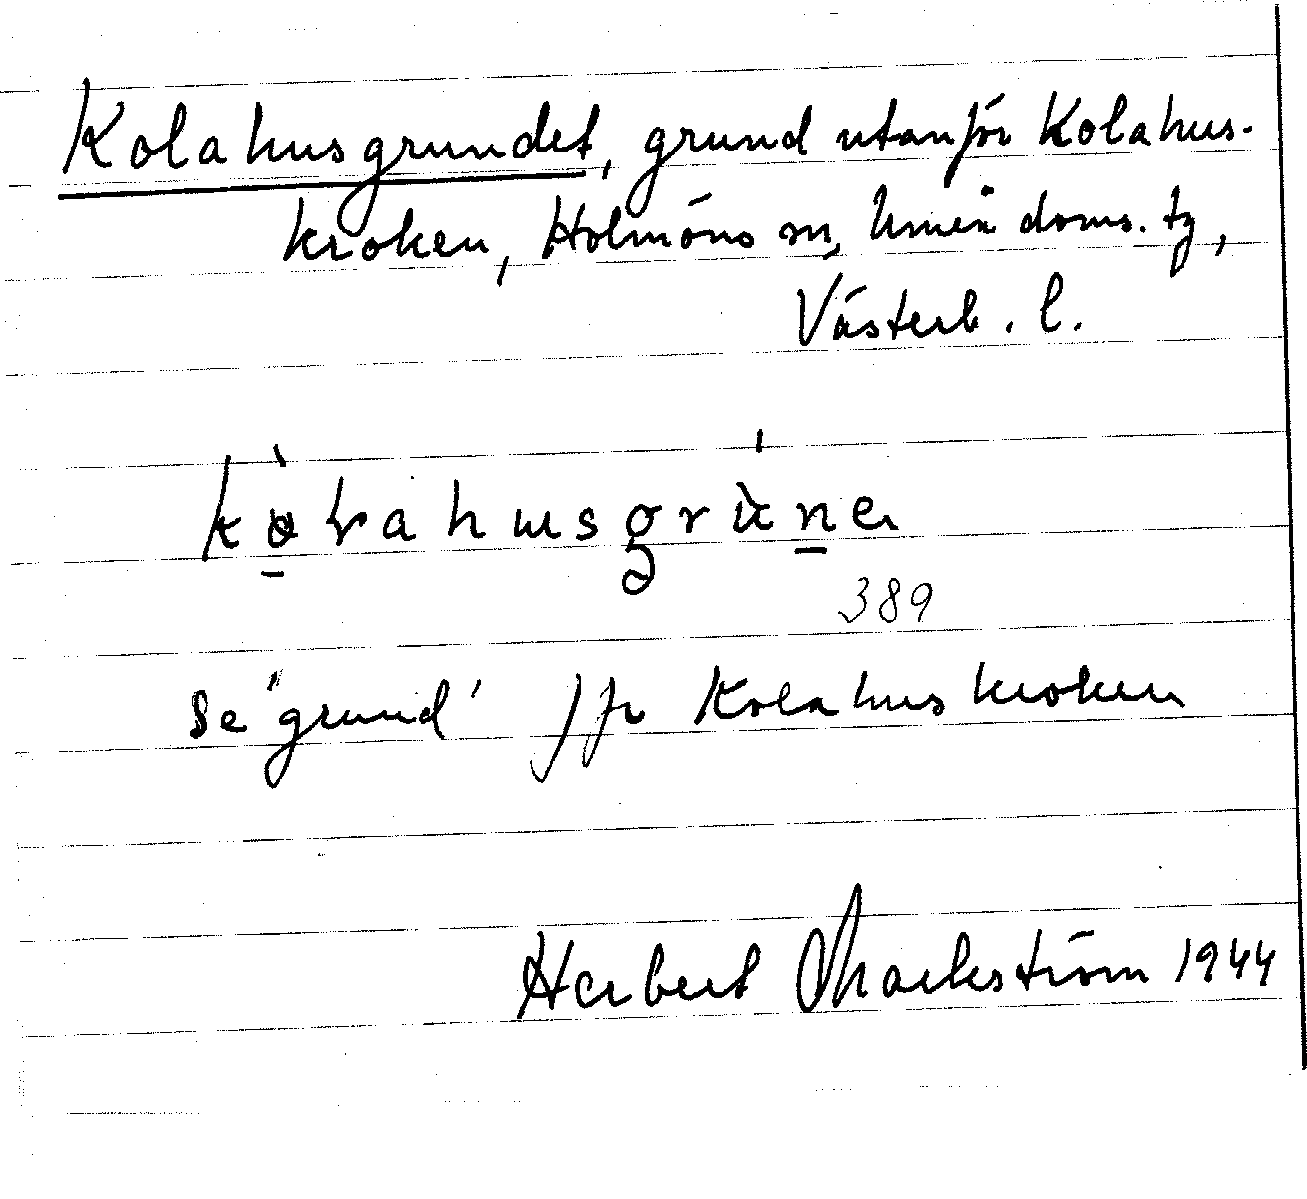 Kolahusgrundet, grund utanför Kolahus-
kroken, Holmöns sn, Umeå doms. tg,
Västerb. l.
389
Se "grund" Jfr Kolahuskroken
Herbert Markström 1944